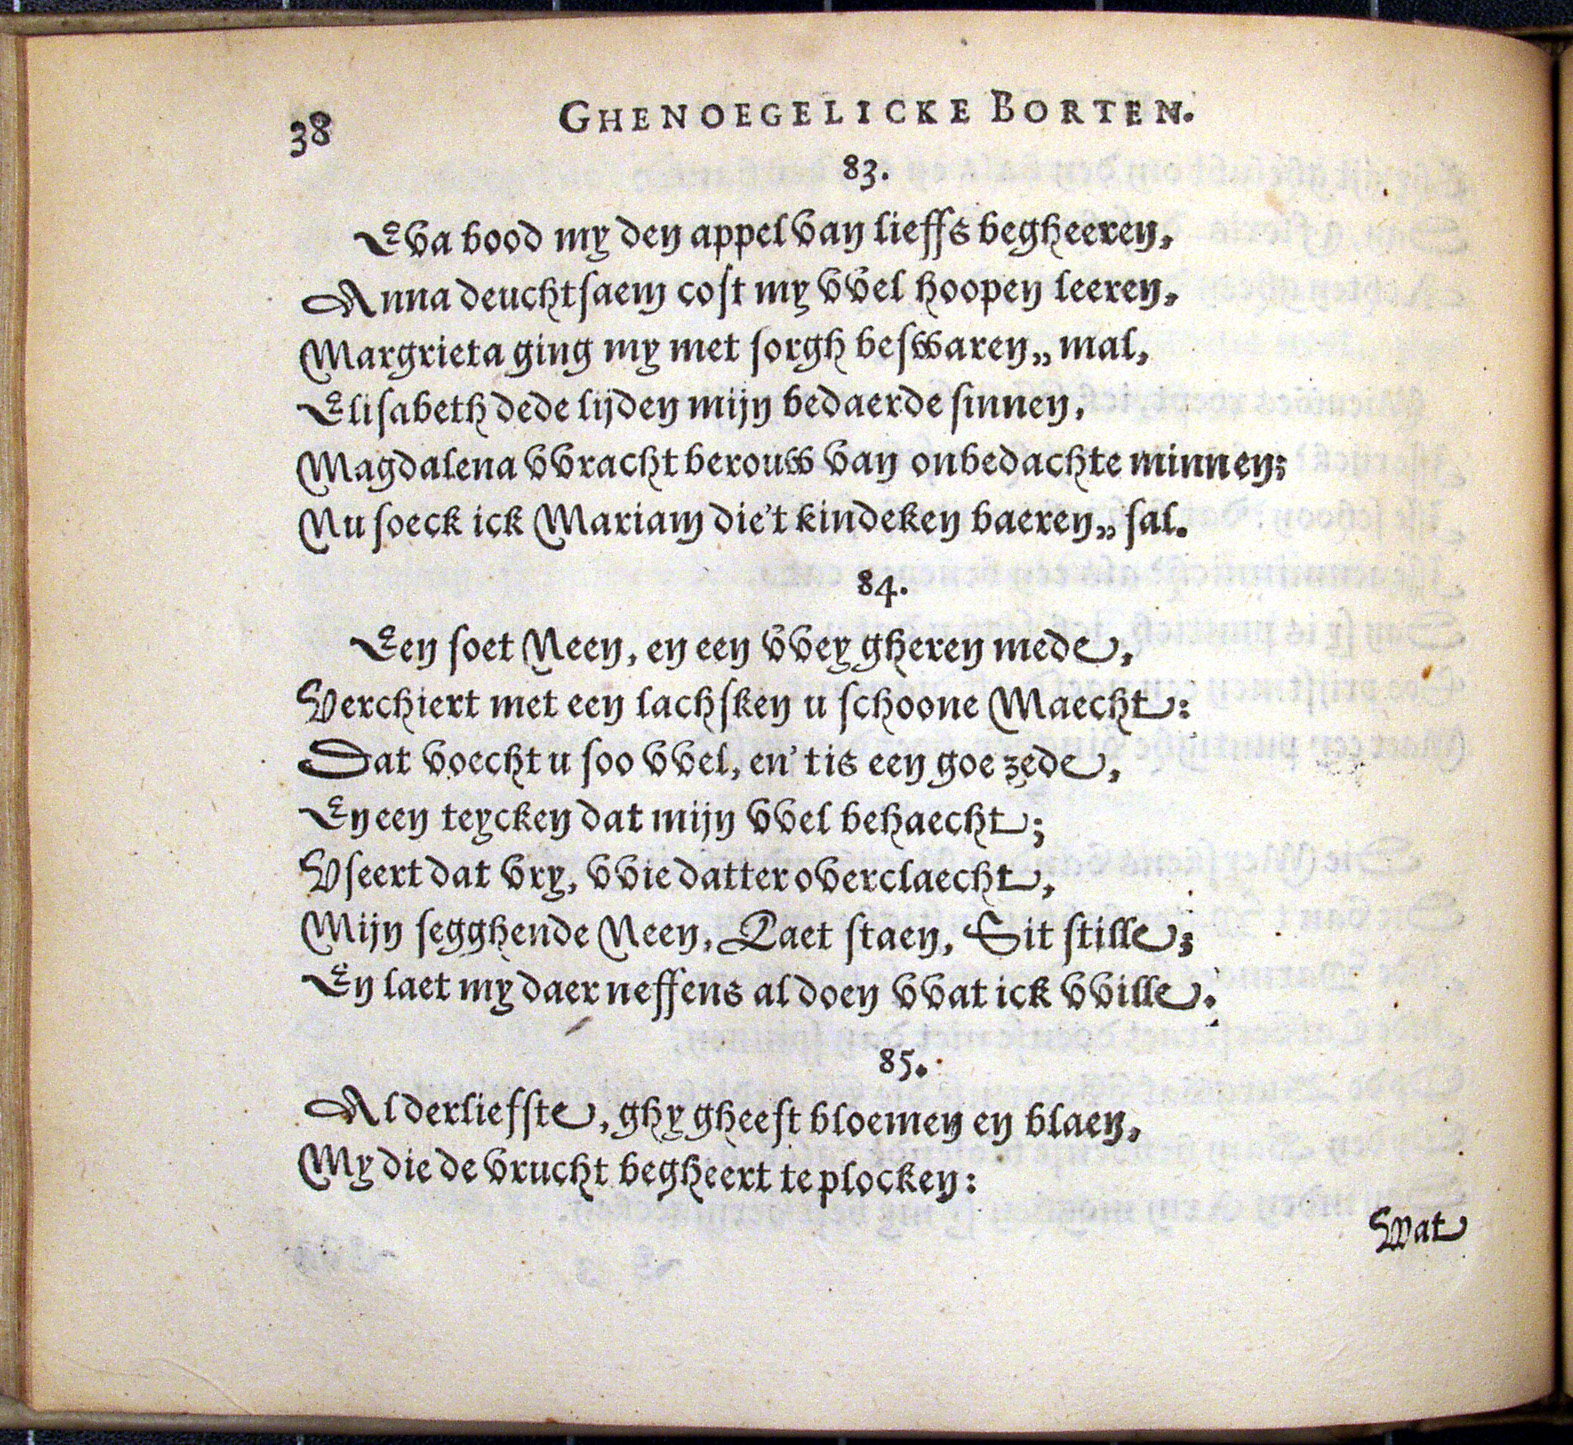 38 GHENOEGELICKE BORTEN.
83.
Eva bood my den appel van lieffs begheeren,
Anna deuchtsaem cost my vvel hoopen leeren,
Margrieta ging my met sorgh beswaren,, mal,
Elisabeth dede lijden mijn bedaerde sinnen,
Magdalena vvracht berouw van onbedachte minnen;
Nu soeck ick Mariam die't kindeken baeren,, sal.
84.
Een soet Neen, en een vveygheren mede,
Verchiert met een lachsken u schoone Maecht:
Dat voecht u soo vvel, en' tis een goe zede,
En een teycken dat mijn vvel behaecht;
Vseert dat vry, vvie datter overclaecht,
Mijn segghende Neen, Laet staen, Sit stille;
En laet my daer neffens al doen vvat ick vville.
85.
Alderliefste, ghy gheeft bloemen en blaen,
My die de vrucht begheert te plocken:
Wat